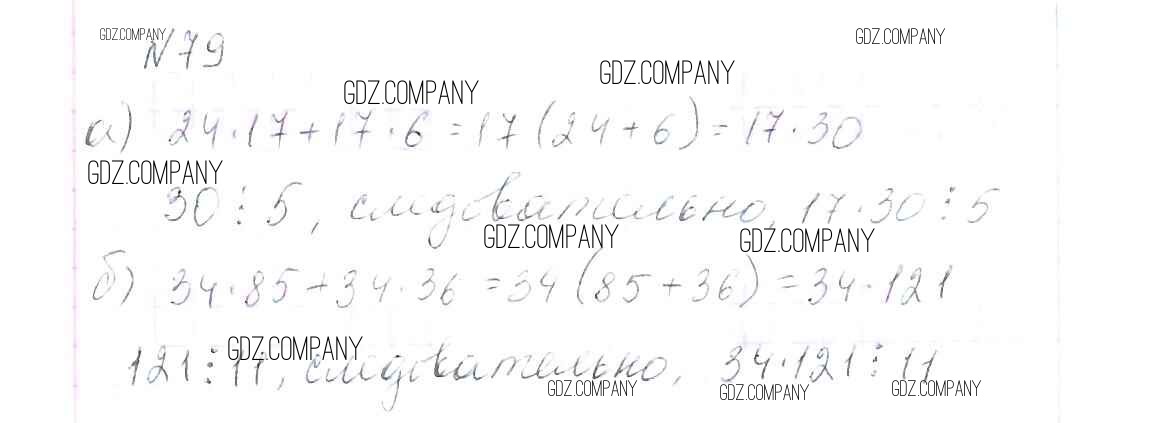 GDZ.COMPANY
GDZ.COMPANY
N 79
GDZ.COMPANY
GDZ.COMPANY
а) 24·17+17·6=17(24+6)=17·30
GDZ.COMPANY
30⋮5, следовательно, 17·30⋮5
GDZ.COMPANY
GDZ.COMPANY
б) 34·85+34·36=34(85+36)=34·121
GDZ.COMPANY
121⋮11, следовательно, 34·121⋮11
GDZ.COMPANY
GDZ.COMPANY
GDZ.COMPANY